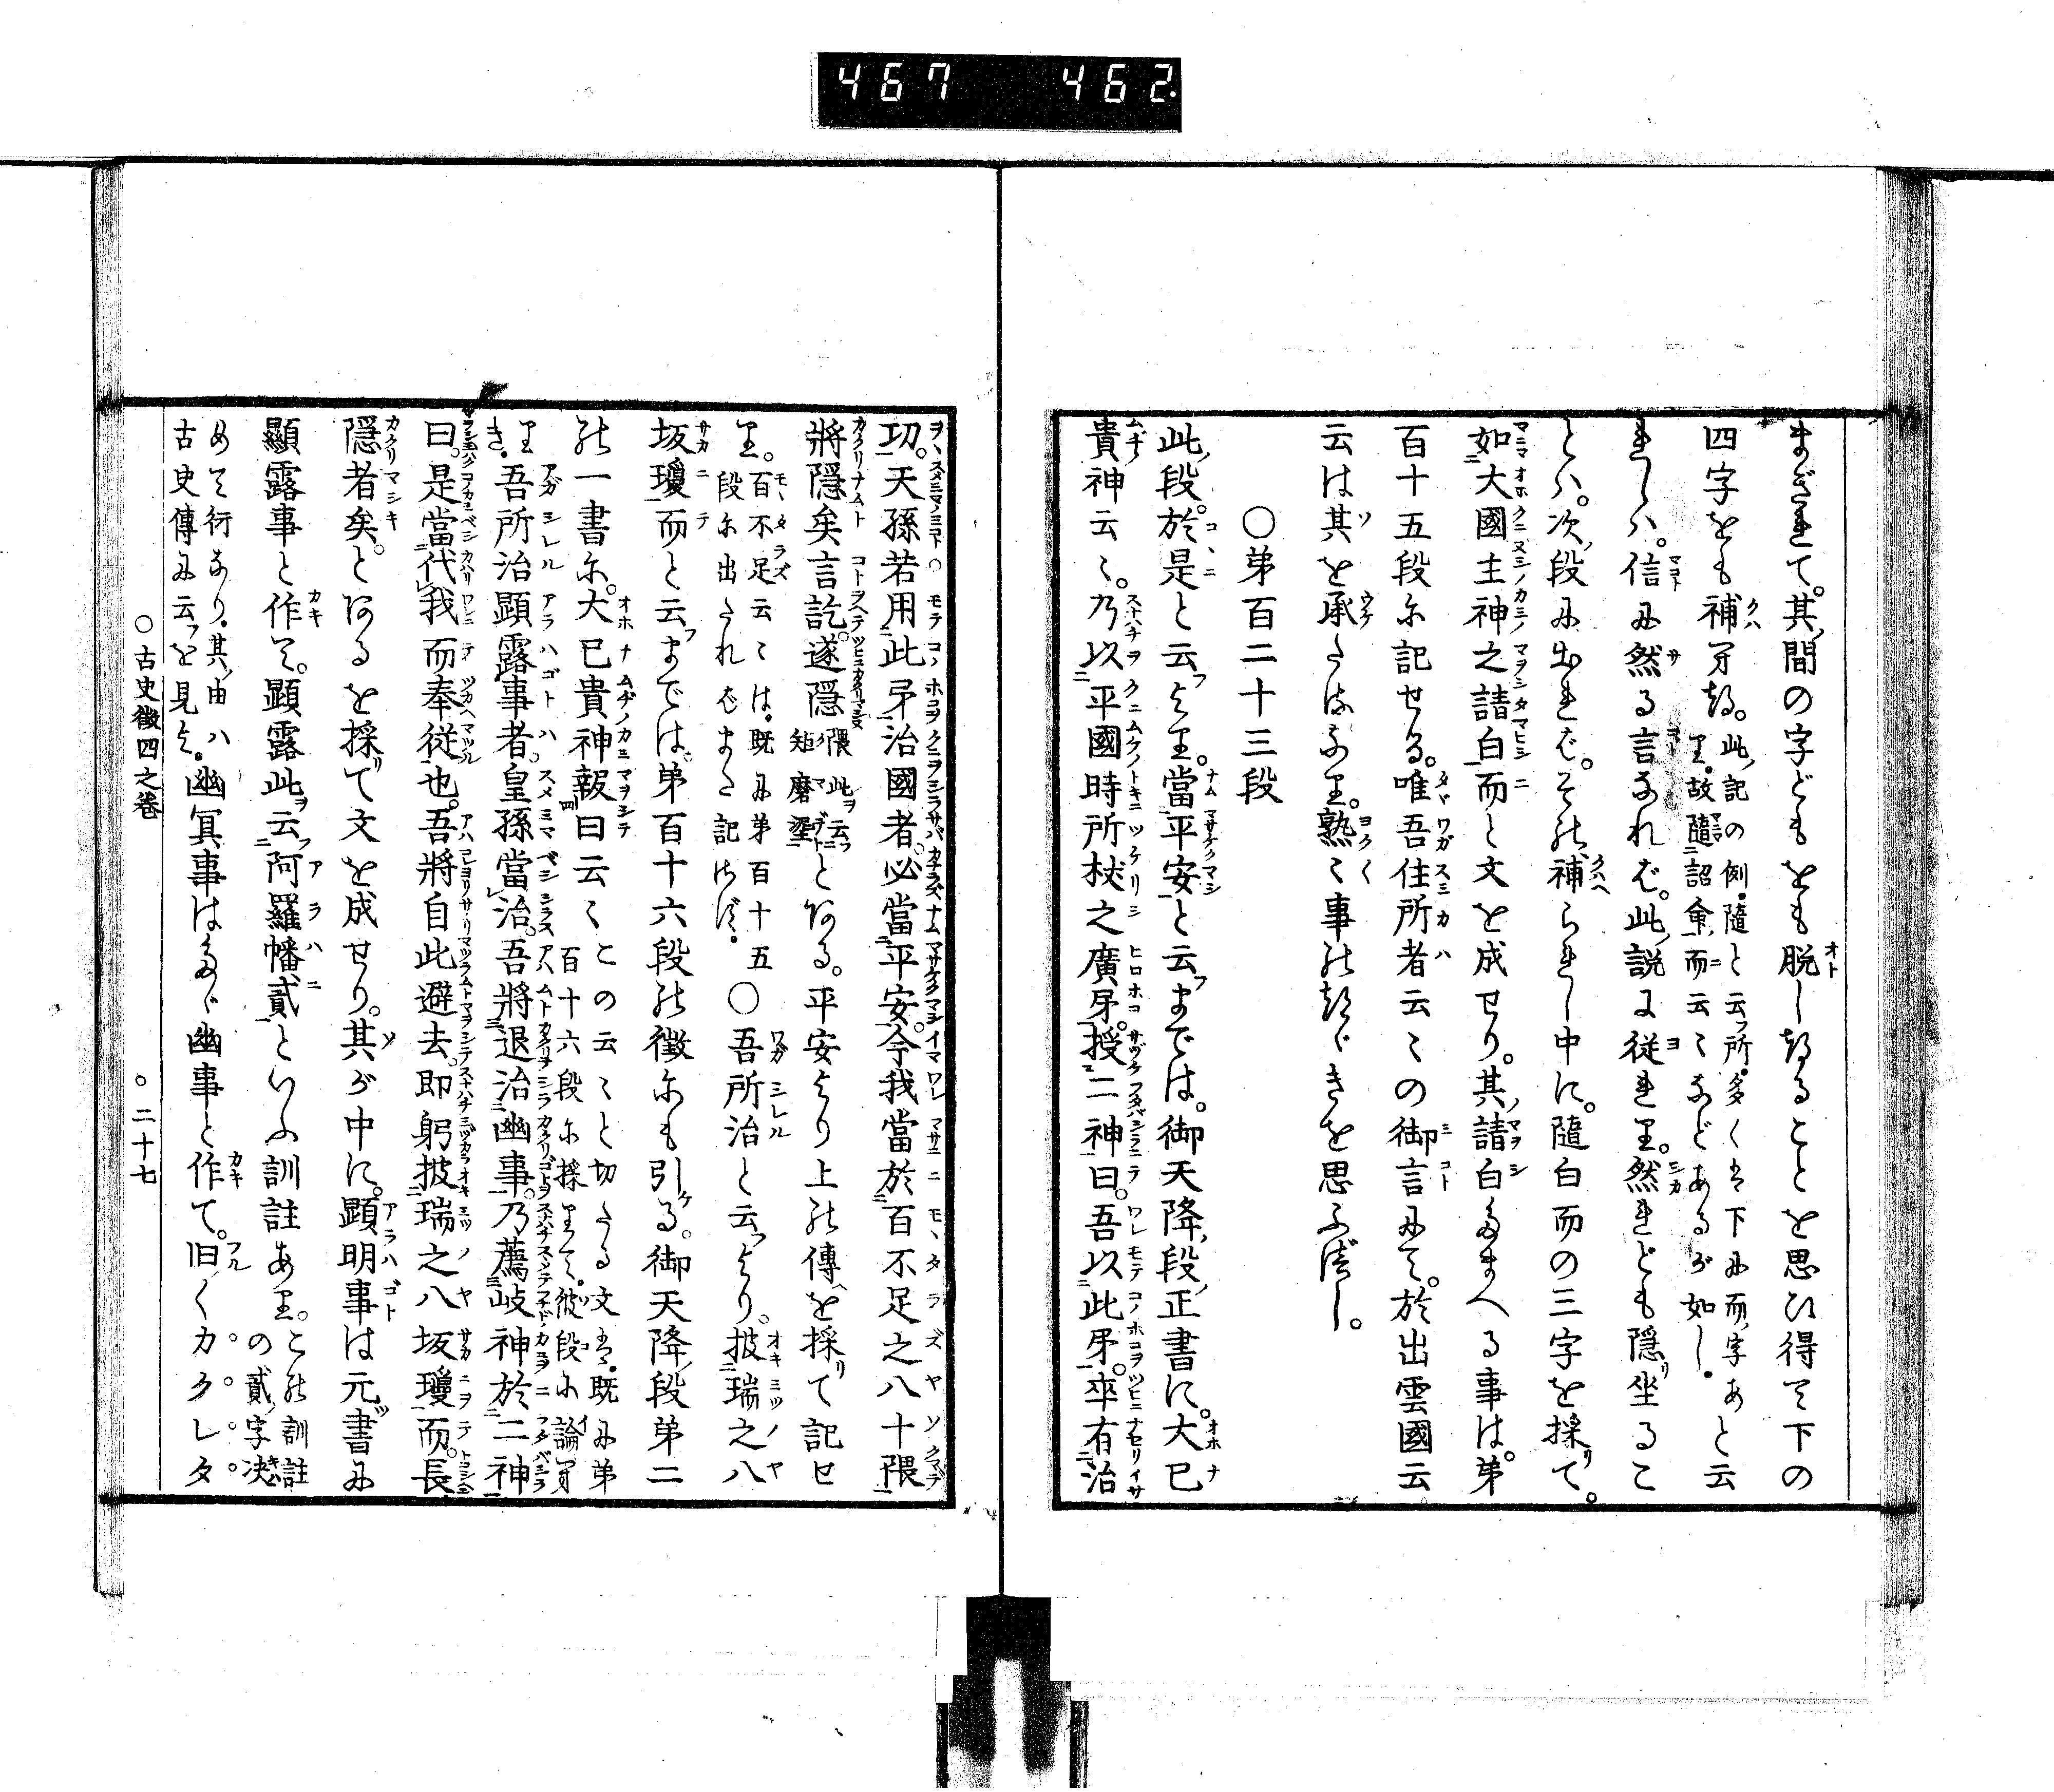 467 462
まぎれて。其間の字どもをも脱したることを思ひ得て下の
四字をも補ひたる。此記の例。隨と云所。多くは下に而字あと云
り。故隨詔命而云々などあるが如し。
れしハ。信に然る言なれば。此説に従れり。然れども隠坐るこ
とハ。次段に出れば。その補られし中に。隨白而の三字を採て。
如大國主神之請白而と文を成せり。其請白たまへる事は。第
百十五段に記せる。唯吾住所者云々の御言にて。於出雲國云
云は其を承たるなり。熟々事のたがきを思ふべし。
〇第百二十三段
此段。於是と云より。當平安と云までは。御天降段正書に。大已
貴神云々。乃以平國時所杖之廣矛。授二神曰。吾以此矛。卒有治
功。天孫若用此矛治國者。必當平安。今我當於百不足之八十隈
將隱矣言訖。遂隱 隈此云矩磨㙙 とある。平安より上の傳を採て記せ
り。百不足云々は。既に第百十五段に出たればまた記さず。〇吾所治と云より。披瑞之八
坂瓊而と云までは第百十六段の徴にも引る。御天降段第二
の一書に。大已貴神報曰云々 この云々と切たる文は。既に第百十六段に採りて。彼段に論ひた
りき。吾所治顯露事者。皇孫當治。吾將退治幽事。乃薦岐神於二神
曰。是當代我而奉從也。吾將自此避去。即躬披瑞之八坂瓊而。長
隱者矣。とあるを採て文を成せり。其が中に。顯明事は元書に
顯露事と作て。顯露此云阿羅幡貳といふ訓註あり。この訓註の貳字决
めて衍なり。其由ハ古史傳に云を見よ。幽冥事はたゞ幽事と作て。旧くカクレタ
〇古史徴四之巻 〇二十七